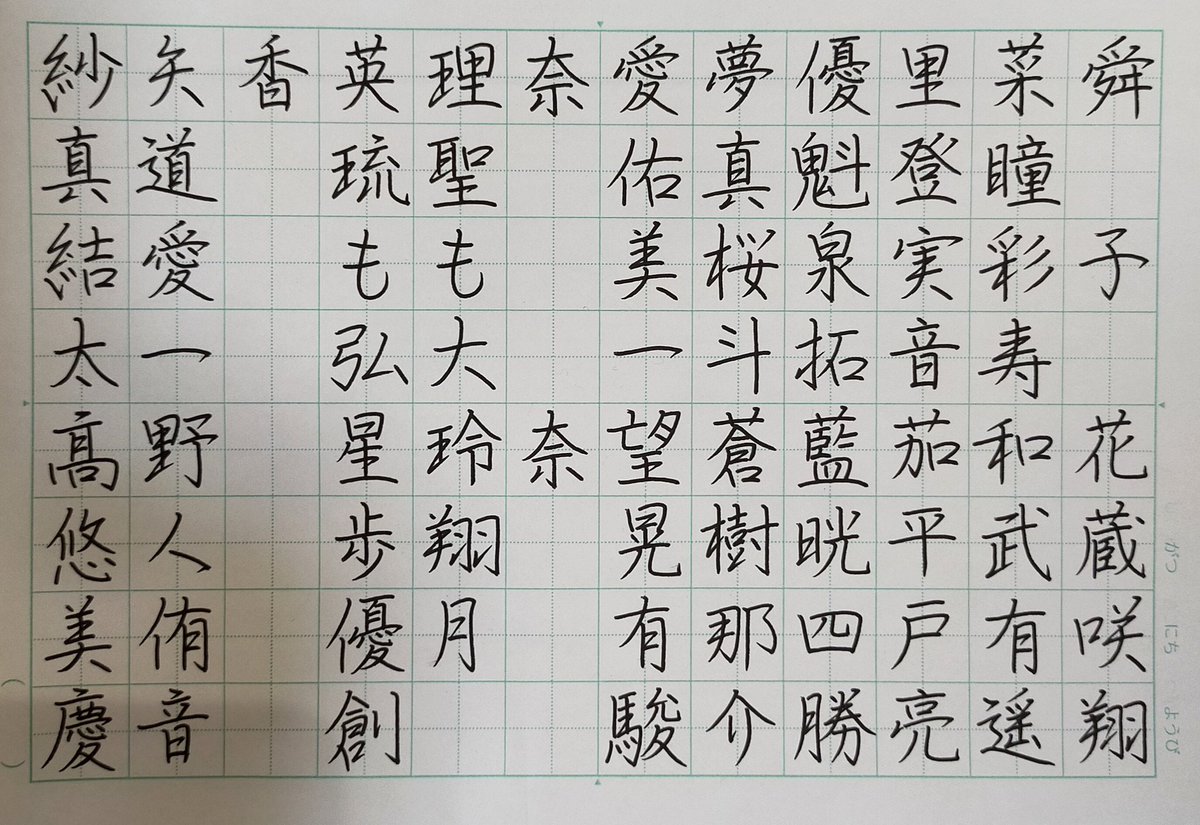 紗矢香英理奈愛夢優里菜舜
真道 琉聖 佑真魁登瞳
結愛 もも 美桜泉実彩子
太一 弘大 一斗拓音寿
髙野 星玲奈望蒼藍茄和花
悠人 歩翔 晃樹晄平武蔵
美侑 優月 有那四戸有咲
慶音 創 駿介勝亮遥翔
がつ にち ようび
( )